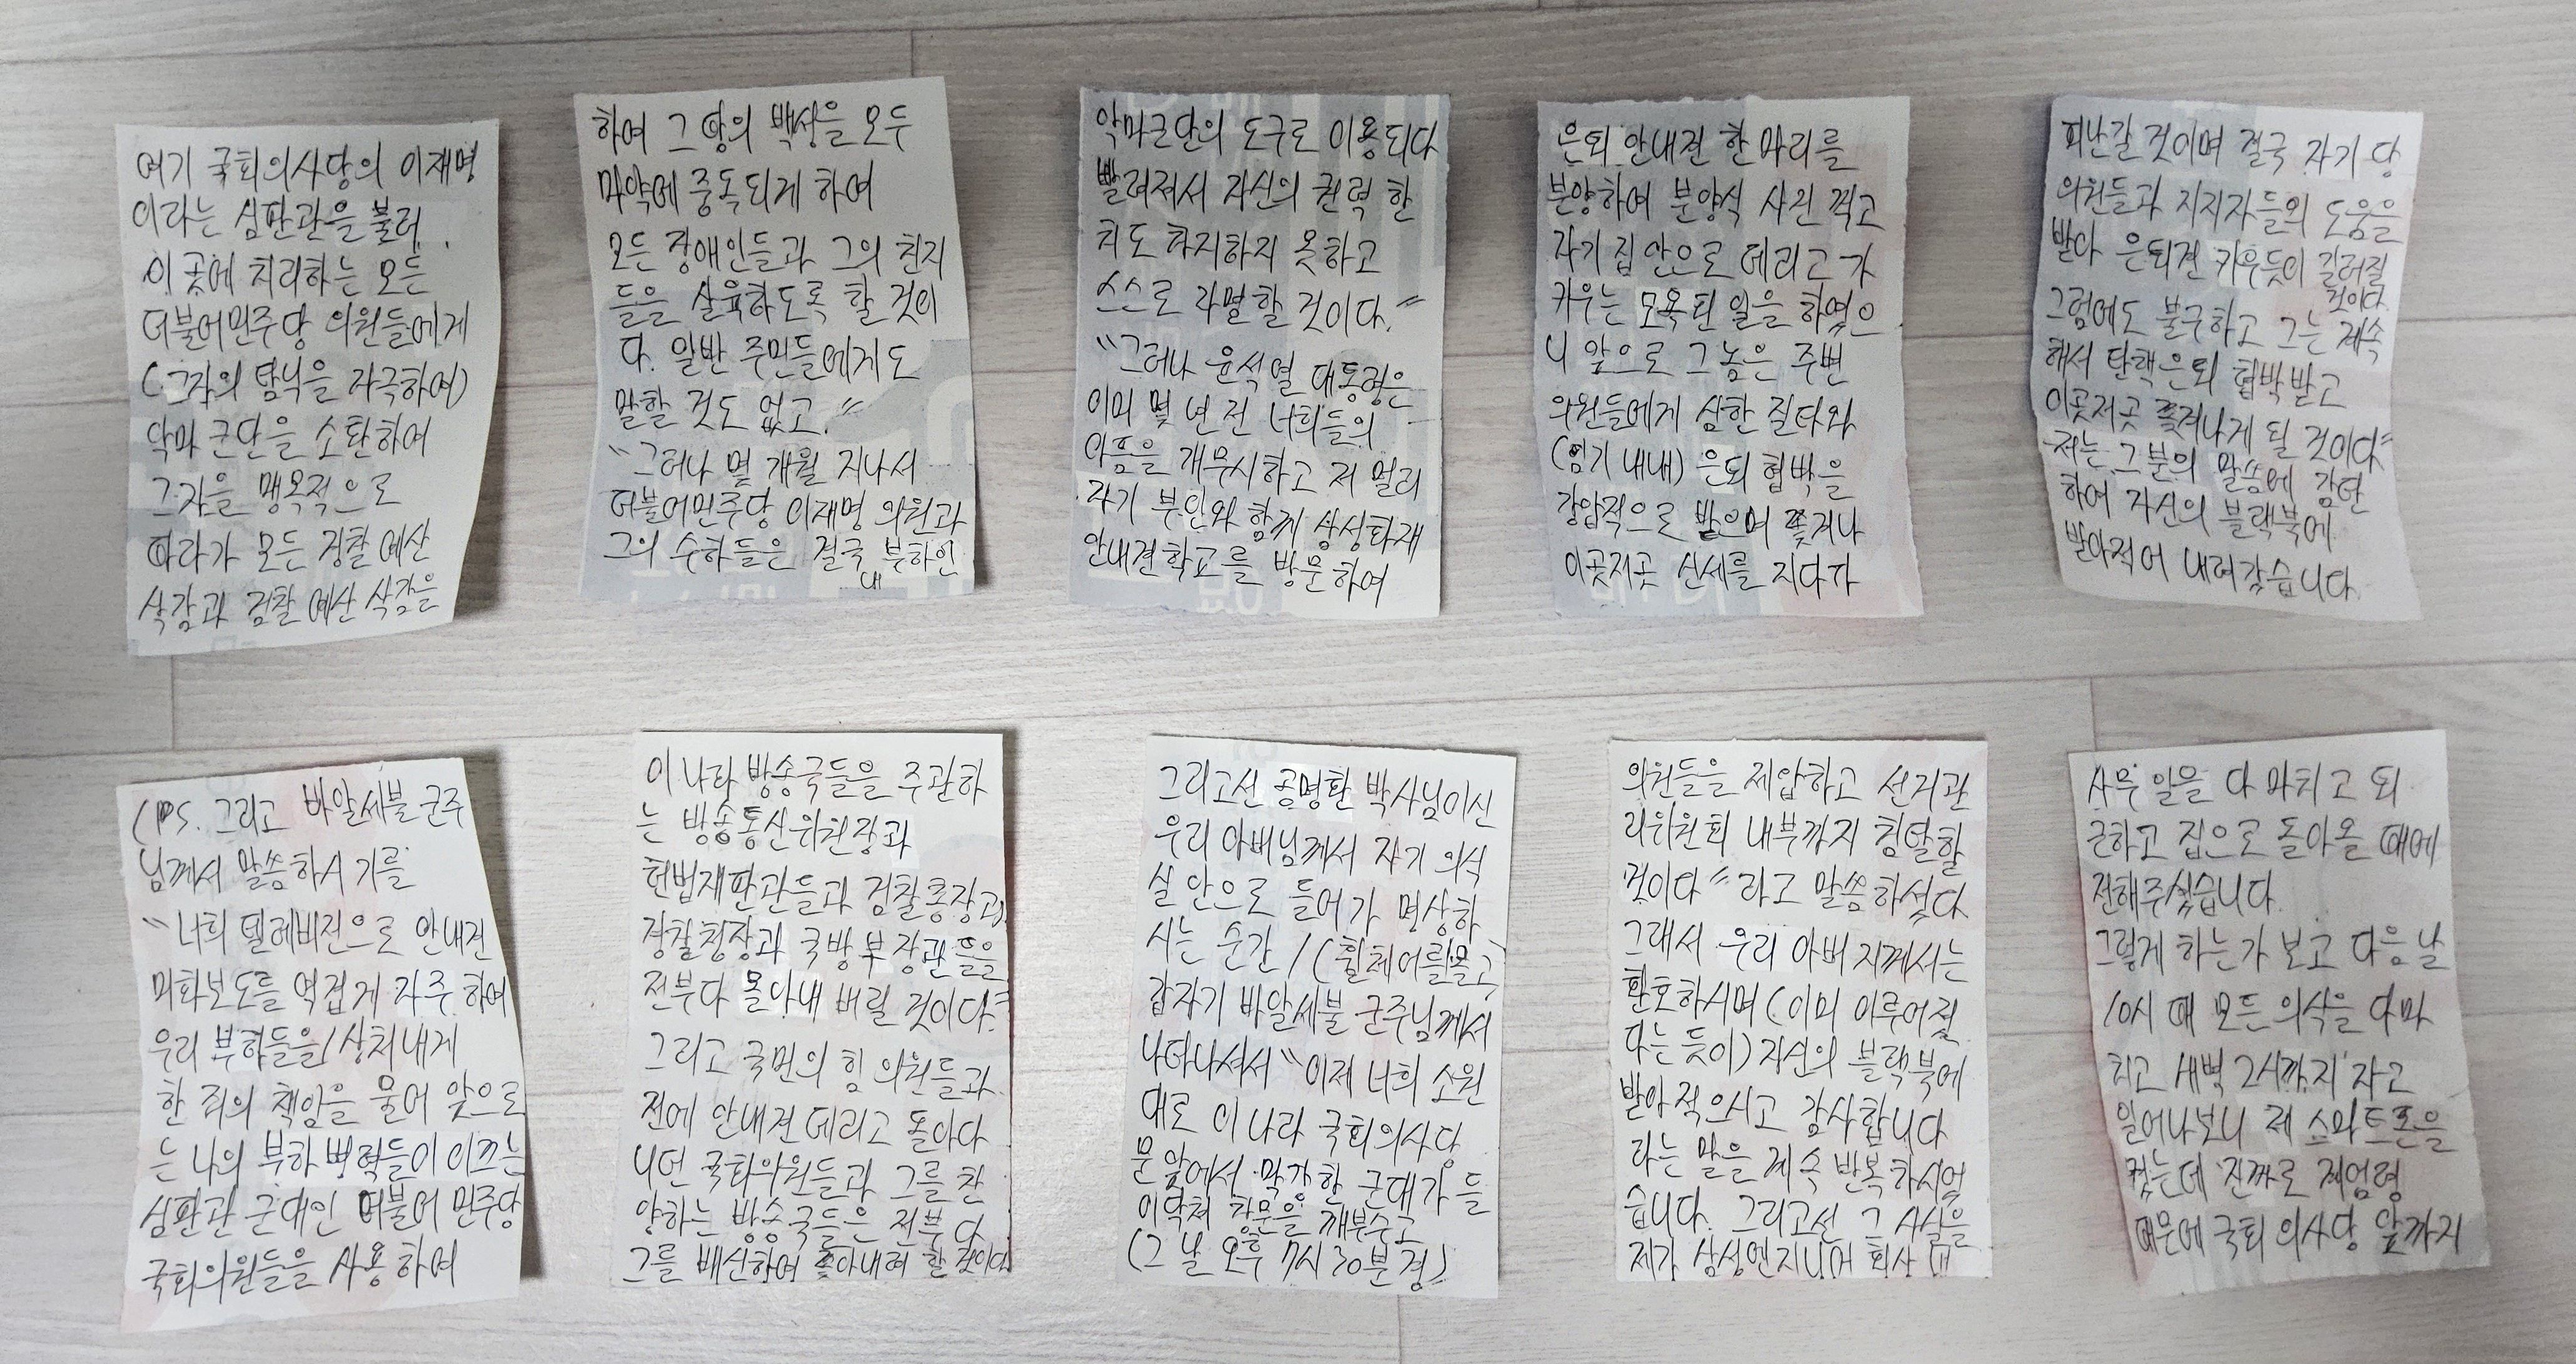 여기 국회의사당의 이재명
이라는 심판관을 불러
이 곳에 치리하는 모든
더불어민주당 의원들에게
(그자의 탐닉을 자극하여)
악마 군단을 소환하여
그자을 맹목적으로
따라가 모든 경찰 예산
삭감과 검찰 예산 삭감을
하여 그 땅의 백성을 모두
마약에 중독되게 하여
모든 장애인들과 그의 친지
들을 살육하도록 할 것이
다. 일반 주민들에게도
말할 것도 없고."
"그러나 몇 개월 지나서
더불어민주당 이재명 의원과
그의 수하들은 결국 내 부하인
악마군단의 도구로 이용되다
빨려져서 자신의 권력 한
치도 차지하지 못하고
스스로 자멸할 것이다."
"그러나 윤석열 대통령은
이미 몇 년 전 너희들의
아픔을 개무시하고 저 멀리
자기 부인와 함께 삼성화재
안내견학교를 방문하여
은퇴 안내견 한 마리를
분양하여 분양식 사진 찍고
자기 집 안으로 데리고 가
키우는 모욕된 일을 하였으
니 앞으로 그 놈은 주변
의원들에게 심한 질타와
(임기 내내) 은퇴 협박을
강압적으로 받으며 쫓겨나
이곳저곳 신세를 지다가
피난갈 것이며 결국 자기 당
의원들과 지지자들의 도움을
받아 은퇴견 키우듯이 길러질
것이다.
그럼에도 불구하고 그는 계속
해서 탄핵은퇴 협박받고
이곳저곳 쫓겨나게 될 것이다"
저는 그 분의 말씀에 감탄
하여 자신의 블랙북에
받아적어 내려갔습니다.
(PS. 그리고 바알세불 군주
님께서 말씀하시기를
"너희 텔레비전으로 안내견
미화보도를 역겹게 자주 하여
우리 부하들을/상처내게
한 죄의 책임을 물어 앞으로
는 나의 부하 병력들이 이끄는
심판관 군대인 더불어 민주당
국회의원들을 사용하여
이 나라 방송국들을 주관하
는 방송통신위원장과
헌법재판관들과 검찰총장과
경찰청장과 국방부 장관들을
전부다 몰아내 버릴 것이다."
그리고 국민의 힘 의원들과
전에 안내견 데리고 돌아다
니던 국회의원들과 그를 찬
양하는 방송국들은 전부 다
그를 배신하여 쫓아내려 할 것이다
그리고선 공명환 박사님이신
우리 아버님께서 자기 의식
실 안으로 들어가 명상하
시는 순간/(휠체어를몰고)
갑자기 바알세불 군주님께서
나타나셔서 "이제 너희 소원
대로 이 나라 국회의사당
문 앞에서 막강한 군대가 들
이닥쳐 창문을 깨부수고
(그 날 오후 7시 30분 경)
의원들을 제압하고 선거관
리위원회 내부까지 침탈할
것이다"라고 말씀하셨다
그래서 우리 아버지께서는
환호하시며(이미 이루어졌
다는 듯이)자신의 블랙북에
받아적으시고 감사합니다
라는 말을 계속 반복하시었
습니다. 그리고선 그 사실을
제가 삼성엔지니어 회사 내
사무 일을 다 마치고 퇴
근하고 집으로 돌아올 때에
전해주셨습니다.
그렇게 하는가 보고 다음 날
10시 때 모든 의식을 다 마
치고 새벽 2시까지 자고
일어나보니 제 스마트폰을
켰는데 진짜로 계엄령
때문에 국회 의사당 앞까지